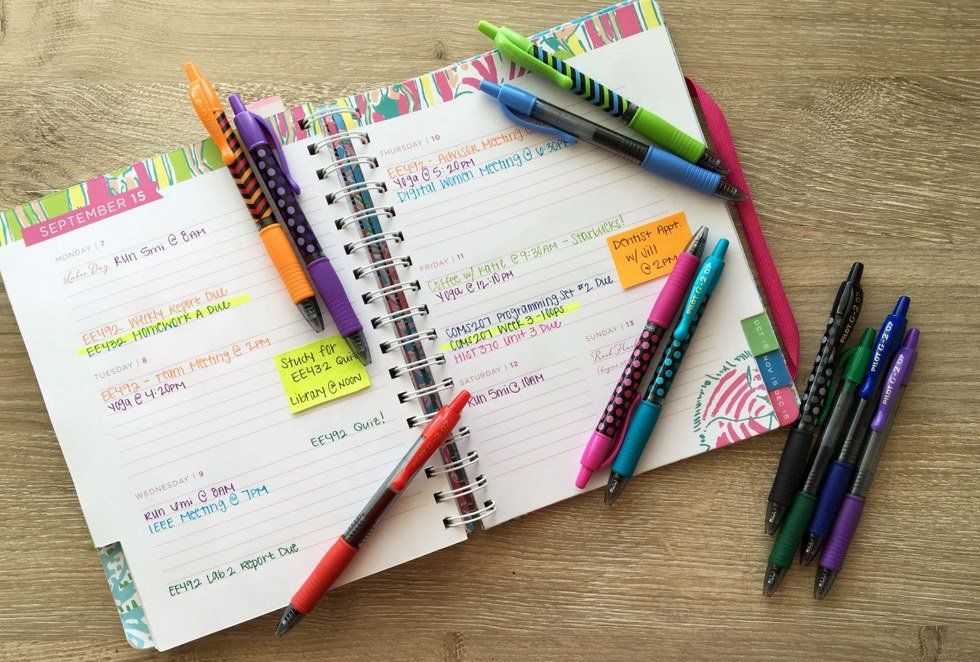 SEPTEMBER 15
MONDAY | 7
Labor Day
Run 5mi @ 8AM
EE492 Weekly Report Due
EE432 Homework A Due
TUESDAY | 8
EE492 - Team Meeting @ 2PM
Yoga @ 4:20PM
Study for
EE432 Quiz
Library @ NOON
EE492 Quiz!
WEDNESDAY | 9
Run 4mi @ 8AM
IEEE Meeting @ 7PM
EE492 Lab 2 Report Due
THURSDAY | 10
EE492 - Advisor Meeting @
Yoga @ 5:20PM
Digital Women Meeting @ 6:30PM
FRIDAY | 11
Coffee w/ Katie @ 9:30AM - Starbucks!
Yoga @ 12:10PM
Dentist Appt.
w/ Jill
@ 2PM
COMS207 Programming Set #2 Due
COMS207 Week 3 -
HIST370 Unit 3 Due
SATURDAY | 12
Run 5mi @ 10AM
SUNDAY | 13
OCT 15
NOV 15
DEC 15
PILOT G-2 07
PILOT G-2 07
PILOT G-2 07
G-2 07
G-2 07